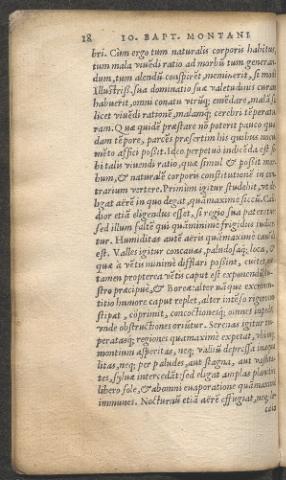 18 IO. BAPT. MONTANI
bri. Cùm ergo tum naturalis corporis habitus,
tum mala viuẽdi ratio ad morbũ tum generan
dum, tum alendũ conspirẽt, meminerit, si modò
Illustriss. sua dominatio suæ valetudinis curam
habuerit, omni conatu vtrũq; emẽdare, malã sci
licet viuẽdi rationẽ, malamq; cerebri tẽperatu
ram. Quæ quidẽ præstare nõ poterit pauco quo
dam tẽpore, parcẽs præsertim his quibus
mẽto affici possit. Ideo perpetuò indicẽda est si
bi talis viuendi ratio, quæ simul & possit mor
bum, & naturalẽ corporis constitutionẽ in con
trarium vertere. Primùm igitur studebit, vt di
ligat aërẽ in quo degat, quàm maximè siccũ. Cali
dior etiã eligendus esset, si regio sua pateretur
sed illum saltẽ qui quàm minimè frigidus iudice
tur. Humiditas autẽ aëris quàm maximè cauẽda
est. Valles igitur concauas, paludosaq; loca, &
quæ à vẽtis minimè difflari possint, euitet,
tamen propterea vẽtis caput est exponendũ
stro præcipuè, & Boreæ: alter nãque excremen
titio humore caput replet, alter intẽso rigore
stipat, cõprimit, concoctionesq; omnes impedit
vnde obstructiones oriũtur. Serenas igitur tem
peratasq; regiones quàm maximè expetat,
montium asperitas, neq; valliũ depressa inæqua
litas, neq; per paludes, aut stagna, aut vastita
tes, syluæ intercedãt: sed eligat amplas planities
libero sole, & ab omni euaporatione quàm maximè
immunes. Nocturnũ etiã aërẽ effugiat, neq;